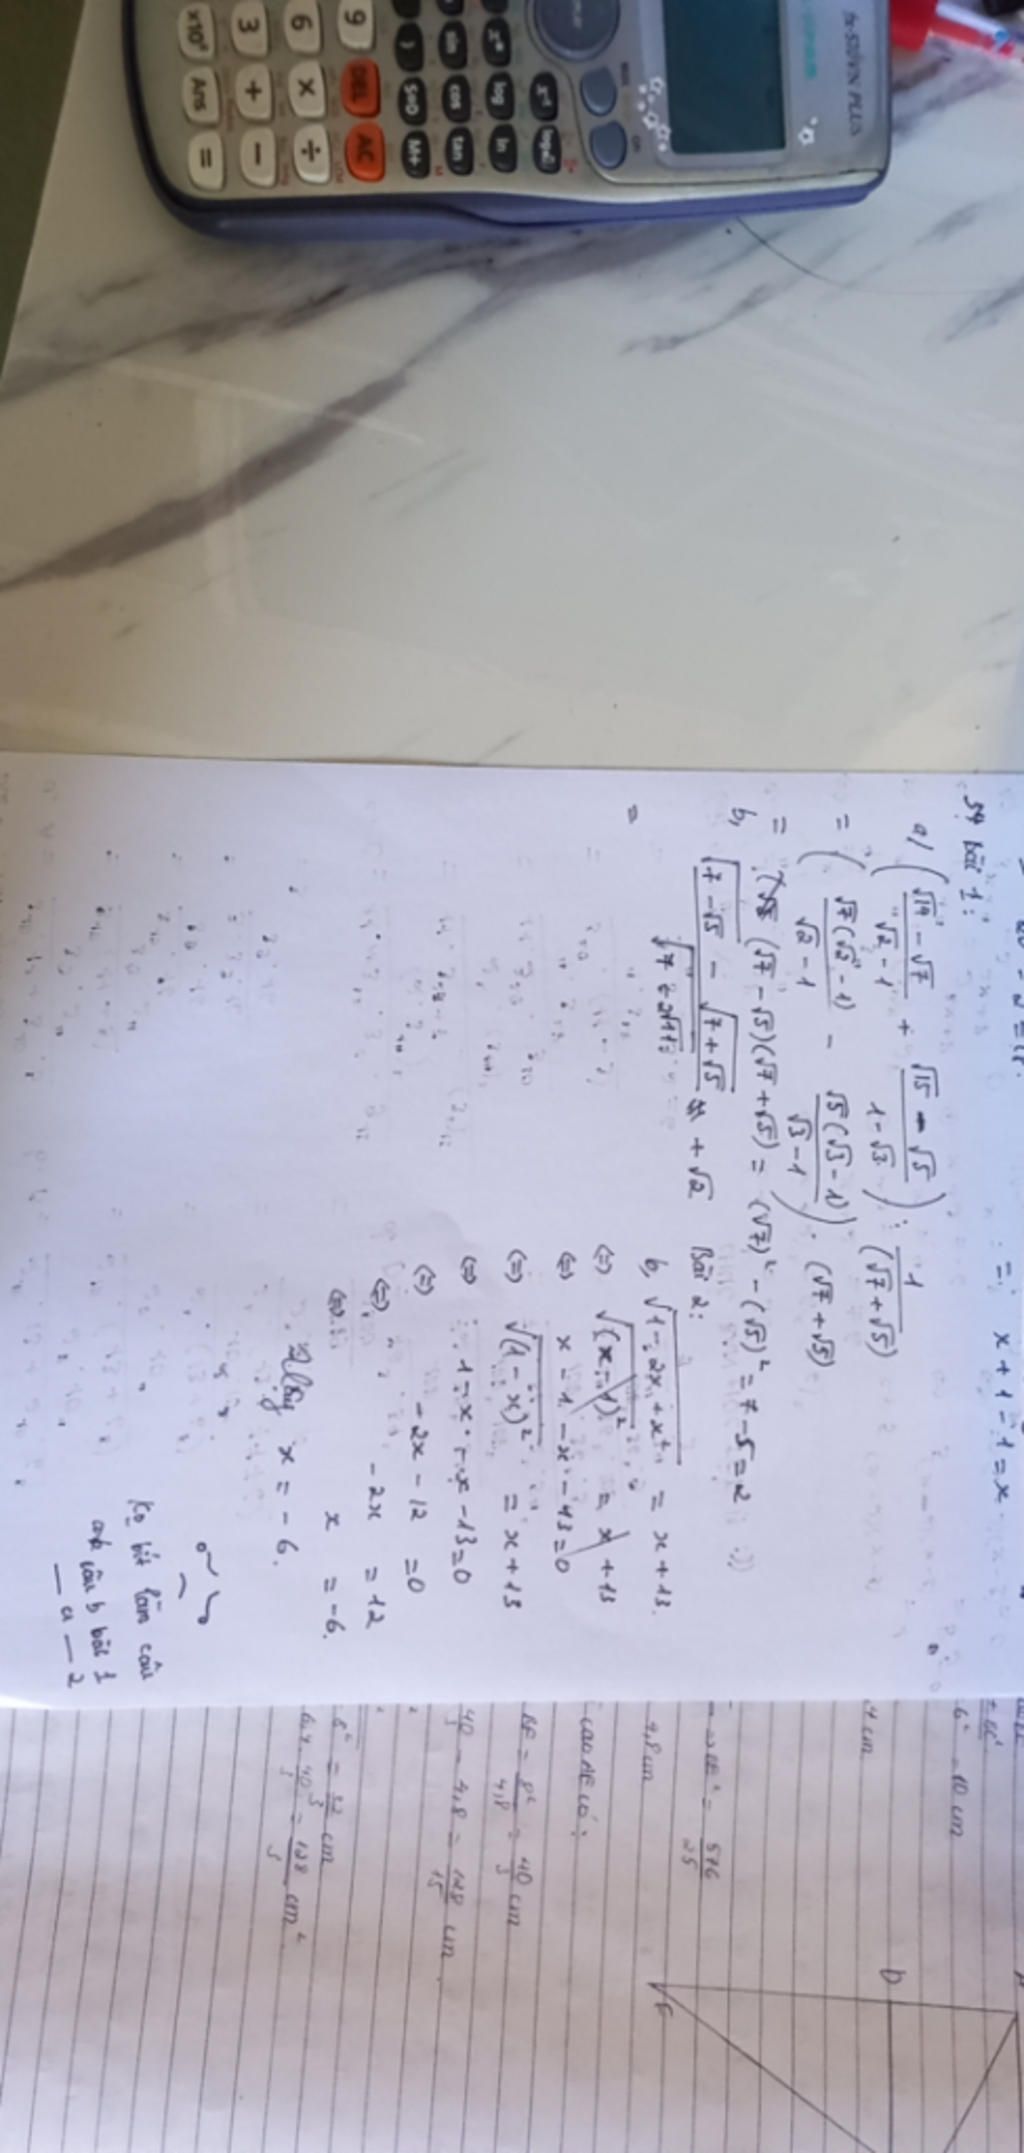 fx-570VN PLUS
x⁻¹
log
ln
sin
cos
tan
)
S⇔D
M+
9
DEL
AC
6
×
÷
3
+
−
×10ˣ
Ans
=
= x + 1 - 1 = x
bài 1:
a/ ( (√14 - √7)/(√2 - 1) + (√15 - √5)/(1 - √3) ) : 1/(√7 + √5)
= ( √7(√2 - 1)/(√2 - 1) - √5(√3 - 1)/(√3 - 1) ) . (√7 + √5)
= (√7 - √5)(√7 + √5) = (√7)² - (√5)² = 7 - 5 = 2 :))
b, (√(7 - √5) - √(7 + √5))/√(7 + 2√11) + √2
=
Bài 2:
b, √(1 - 2x + x²) = x + 13.
⇔ √(x - 1)² = x + 13
⇔ x - 1 - x - 13 = 0
⇔ √(1 - x)² = x + 13
⇔ 1 - x - x - 13 = 0
⇔ - 2x - 12 = 0
⇔ - 2x = 12
⇔ x = -6.
Vậy x = - 6.
Ko bít làm câu
câu b bài 1
— a — 2
6² = 10 cm
= 576/25
4,8 cm
cao AE có:
BF = 8²/4,8 = 40/3 cm
40/3 - 4,8 = 128/15 cm
= 32/3 cm
6,4 . 40/3 = 128/3 cm²
D